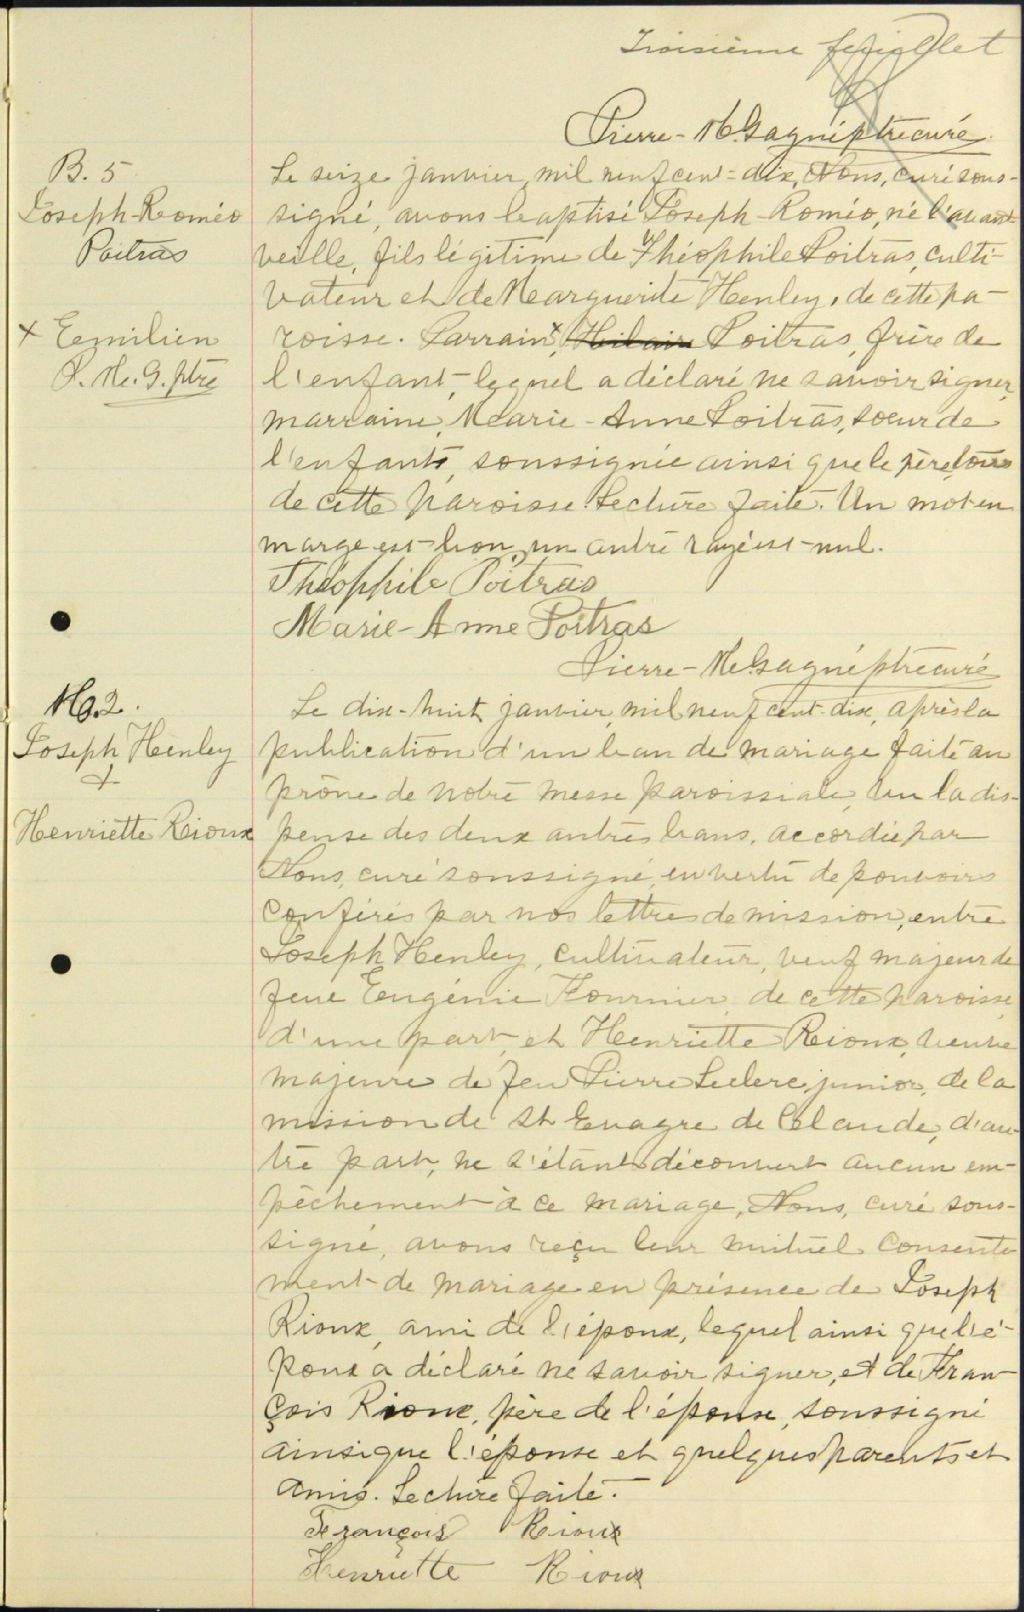 Troisième feuillet
Pierre-M. Gagné ptre curé
B. 5
Joseph-Roméo
Poitras
+ Emilien
P. M. G. ptre
Le seize janvier, mil neuf cent-dix, Nous, curé sous-
signé, avons baptisé Joseph-Roméo, né l'avant-
veille, fils légitime de Théophile Poitras, culti-
vateur et de Marguerite Henley, de cette pa-
roisse. Parrain +, Hilaire Poitras, frère de
l'enfant, lequel a déclaré ne savoir signer,
marraine, Marie-Anne Poitras, soeur de
l'enfant, soussignée ainsi que le père, tous
de cette paroisse. Lecture faite. Un mot en
marge est bon, un autre rayé est nul.
Théophile Poitras
Marie-Anne Poitras
Pierre-M. Gagné ptre curé
M. 2.
Joseph Henley
+
Henriette Rioux
Le dix-huit janvier, mil neuf cent-dix, après la
publication d'un ban de mariage faite au
prône de notre messe paroissiale, vu la dis-
pense des deux autres bans, accordée par
Nous, curé soussigné, en vertu de pouvoirs
conférés par nos lettres de mission, entre
Joseph Henley, cultivateur, veuf majeur de
feue Eugénie Fournier, de cette paroisse,
d'une part, et Henriette Rioux, veuve
majeure de feu Pierre Leclerc junior, de la
mission de St Evagre de Cloande, d'au-
tre part, ne s'étant découvert aucun em-
pêchement à ce mariage, Nous, curé sous-
signé, avons reçu leur mutuel consente
ment de mariage en présence de Joseph
Rioux, ami de l'époux, lequel ainsi que l'é-
poux a déclaré ne savoir signer, et de Fran-
çois Rioux, père de l'épouse, soussigné
ainsi que l'épouse et quelques parents et
amis. Lecture faite.
François Rioux
Henriette Rioux